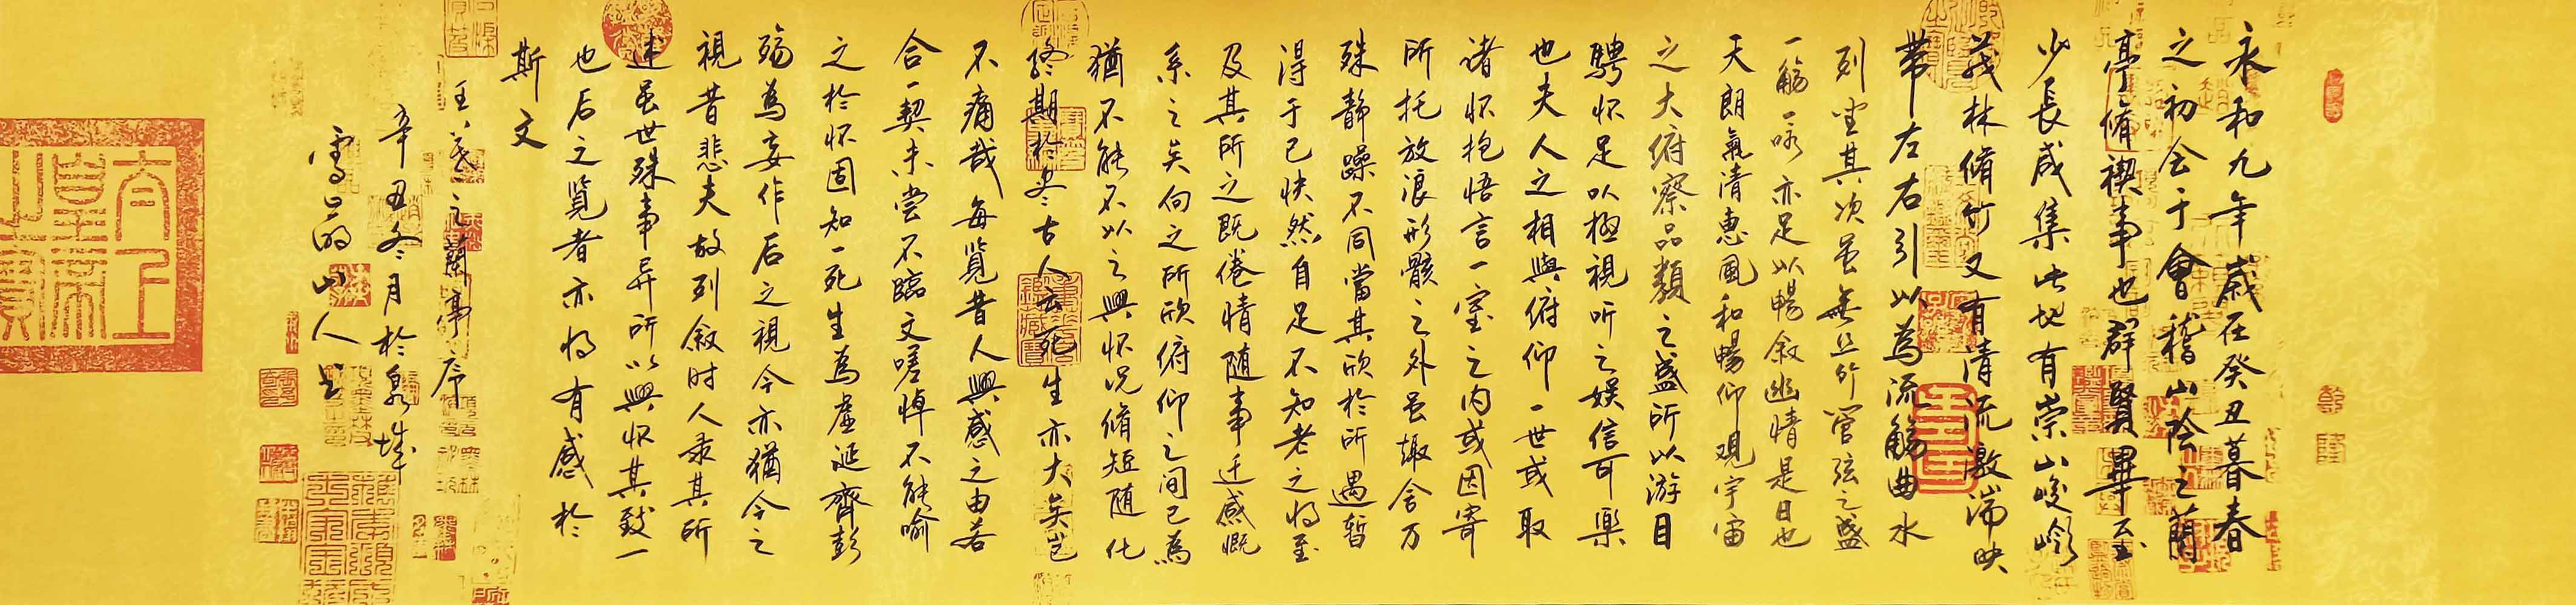 永和九年歲在癸丑暮春
之初会于會稽山陰之蘭
亭脩禊事也群賢畢至
少長咸集此地有崇山峻嶺
茂林脩竹又有清流激湍映
帶左右引以為流觴曲水
列坐其次虽無丝竹管弦之盛
一觴一咏亦足以暢叙幽情是日也
天朗氣清惠風和暢仰觀宇宙
之大俯察品類之盛所以游目
騁怀足以極視听之娱信可樂
也夫人之相與俯仰一世或取
诸怀抱悟言一室之内或因寄
所托放浪形骸之外虽趣舍万
殊静躁不同當其欣於所遇暂
得于己快然自足不知老之将至
及其所之既倦情随事迁感慨
系之矣向之所欣俯仰之间已為
猶不能不以之興怀况脩短随化
終期於尽古人云死生亦大矣岂
不痛哉每览昔人興感之由若
合一契未尝不臨文嗟悼不能喻
之於怀固知一死生為虚诞齊彭
殇為妄作后之視今亦猶今之
視昔悲夫故列叙时人录其所
述虽世殊事异所以興怀其致一
也后之览者亦将有感於
斯文
王羲之蘭亭序
辛丑冬月於泉城
山人书